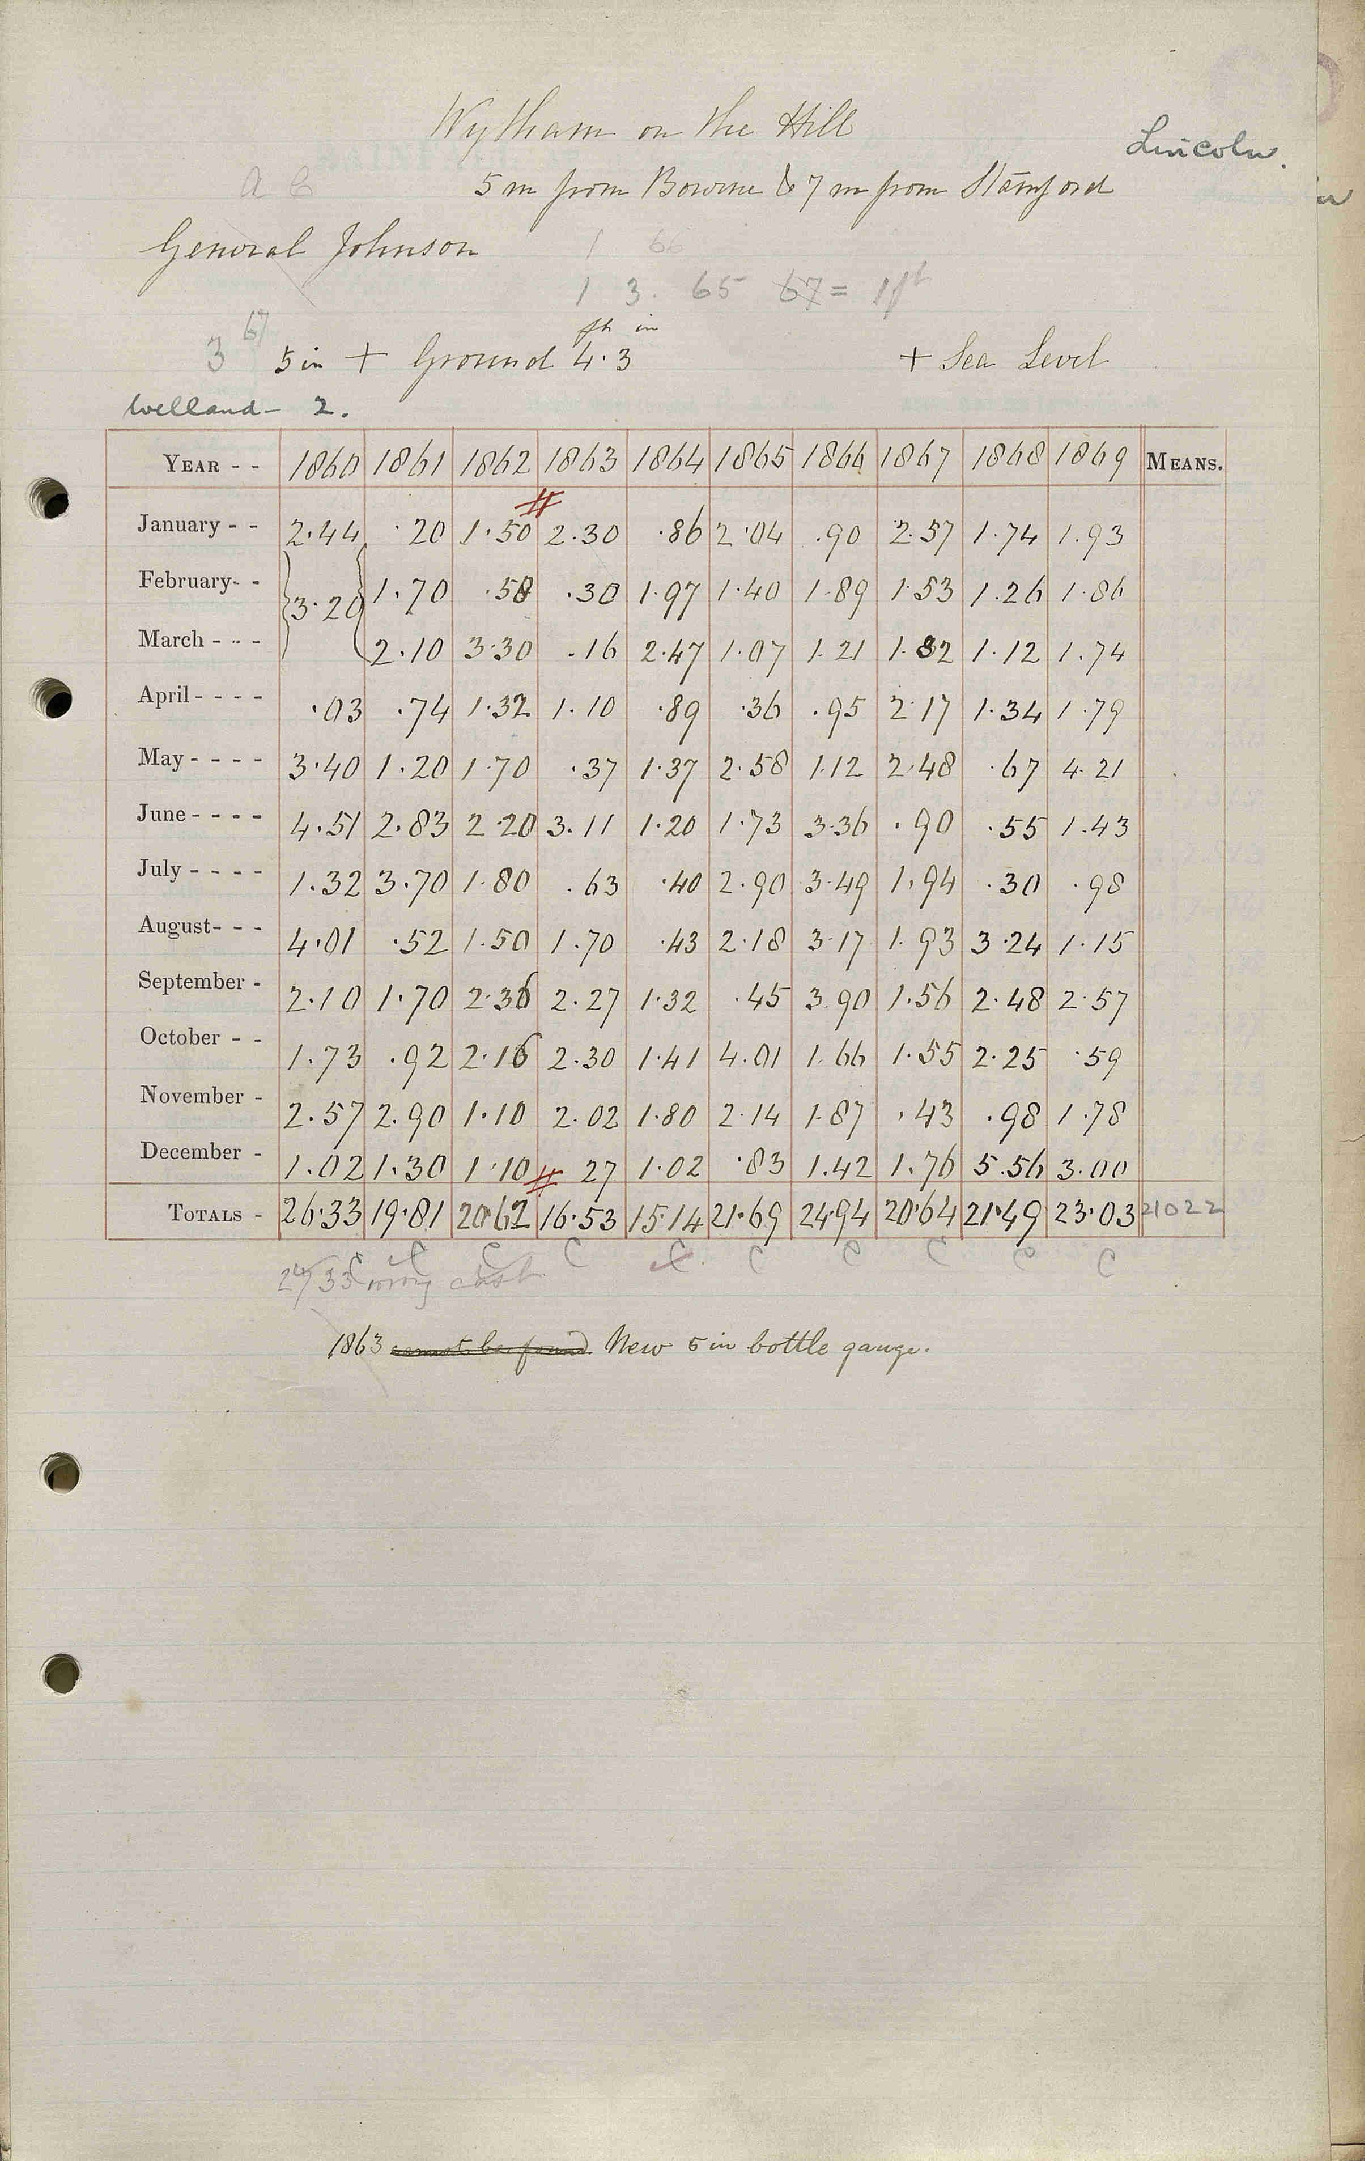 Wytham on the Hill
Lincoln.
A C
5 m from Bourne & 7 m from Stamford
General Johnson
1 66
1 3. 65 67 = 1ft
3 67
ft in
5 in + Ground 4.3 + Sea Level
Welland - 2.
YEAR - - 1860 1861 1862 1863 1864 1865 1866 1867 1868 1869 MEANS.
#
January - - 2.44 .20 1.50 2.30 .86 2.04 .90 2.57 1.74 1.93
February- - 3.20 1.70 .58 .30 1.97 1.40 1.89 1.53 1.26 1.86
March - - - 2.10 3.30 .16 2.47 1.07 1.21 1.82 1.12 1.74
April - - - - .03 .74 1.32 1.10 .89 .36 .95 2.17 1.34 1.79
May - - - - 3.40 1.20 1.70 .37 1.37 2.58 1.12 2.48 .67 4.21
June - - - - 4.51 2.83 2.20 3.11 1.20 1.73 3.36 .90 .55 1.43
July - - - - 1.32 3.70 1.80 .63 .40 2.90 3.49 1.94 .30 .98
August- - - 4.01 .52 1.50 1.70 .43 2.18 3.17 1.93 3.24 1.15
September - 2.10 1.70 2.36 2.27 1.32 .45 3.90 1.56 2.48 2.57
October - - 1.73 .92 2.16 2.30 1.41 4.01 1.66 1.55 2.25 .59
November - 2.57 2.90 1.10 2.02 1.80 2.14 1.87 .43 .98 1.78
December - 1.02 1.30 1.10 # 27 1.02 .83 1.42 1.76 5.56 3.00
TOTALS - 26.33 19.81 20.62 16.53 15.14 21.69 24.94 20.64 21.49 23.03 21022
C C C C C C C C C C
24/33 wrong cast
1863 cannot be found New 5 in bottle gauge.